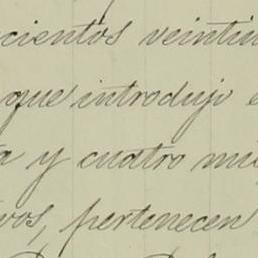 cientos veintiu
que introdujo e
a y cuatro mi
vos, pertenecen